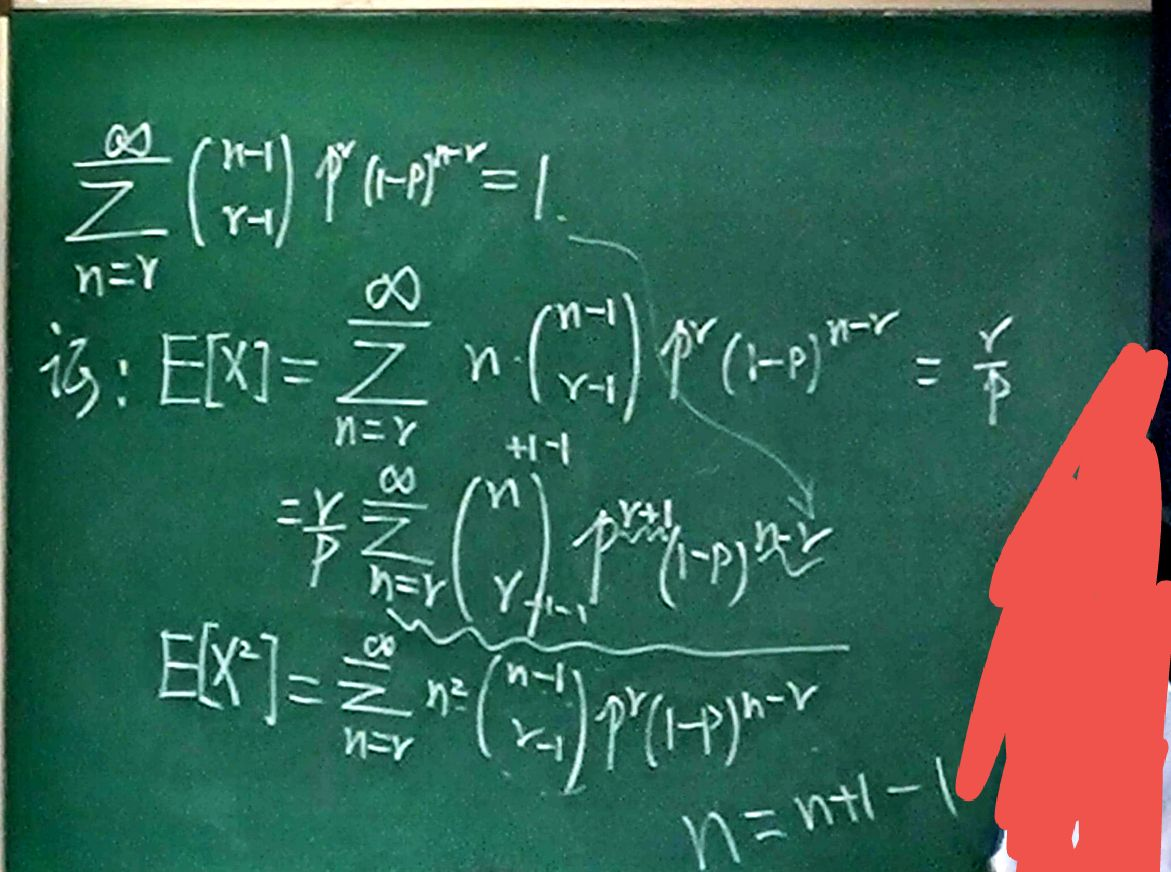 ∑_{n=r}^{∞} \binom{n-1}{r-1} p^r (1-p)^{n-r} = 1.
证: E[X] = ∑_{n=r}^{∞} n·\binom{n-1}{r-1} p^r (1-p)^{n-r} = \frac{r}{p}
= \frac{r}{p} ∑_{n=r}^{∞} \binom{n+1-1}{r+1-1} p^{r+1} (1-p)^{n-r}
E[X²] = ∑_{n=r}^{∞} n² \binom{n-1}{r-1} p^r (1-p)^{n-r}
n = n+1-1